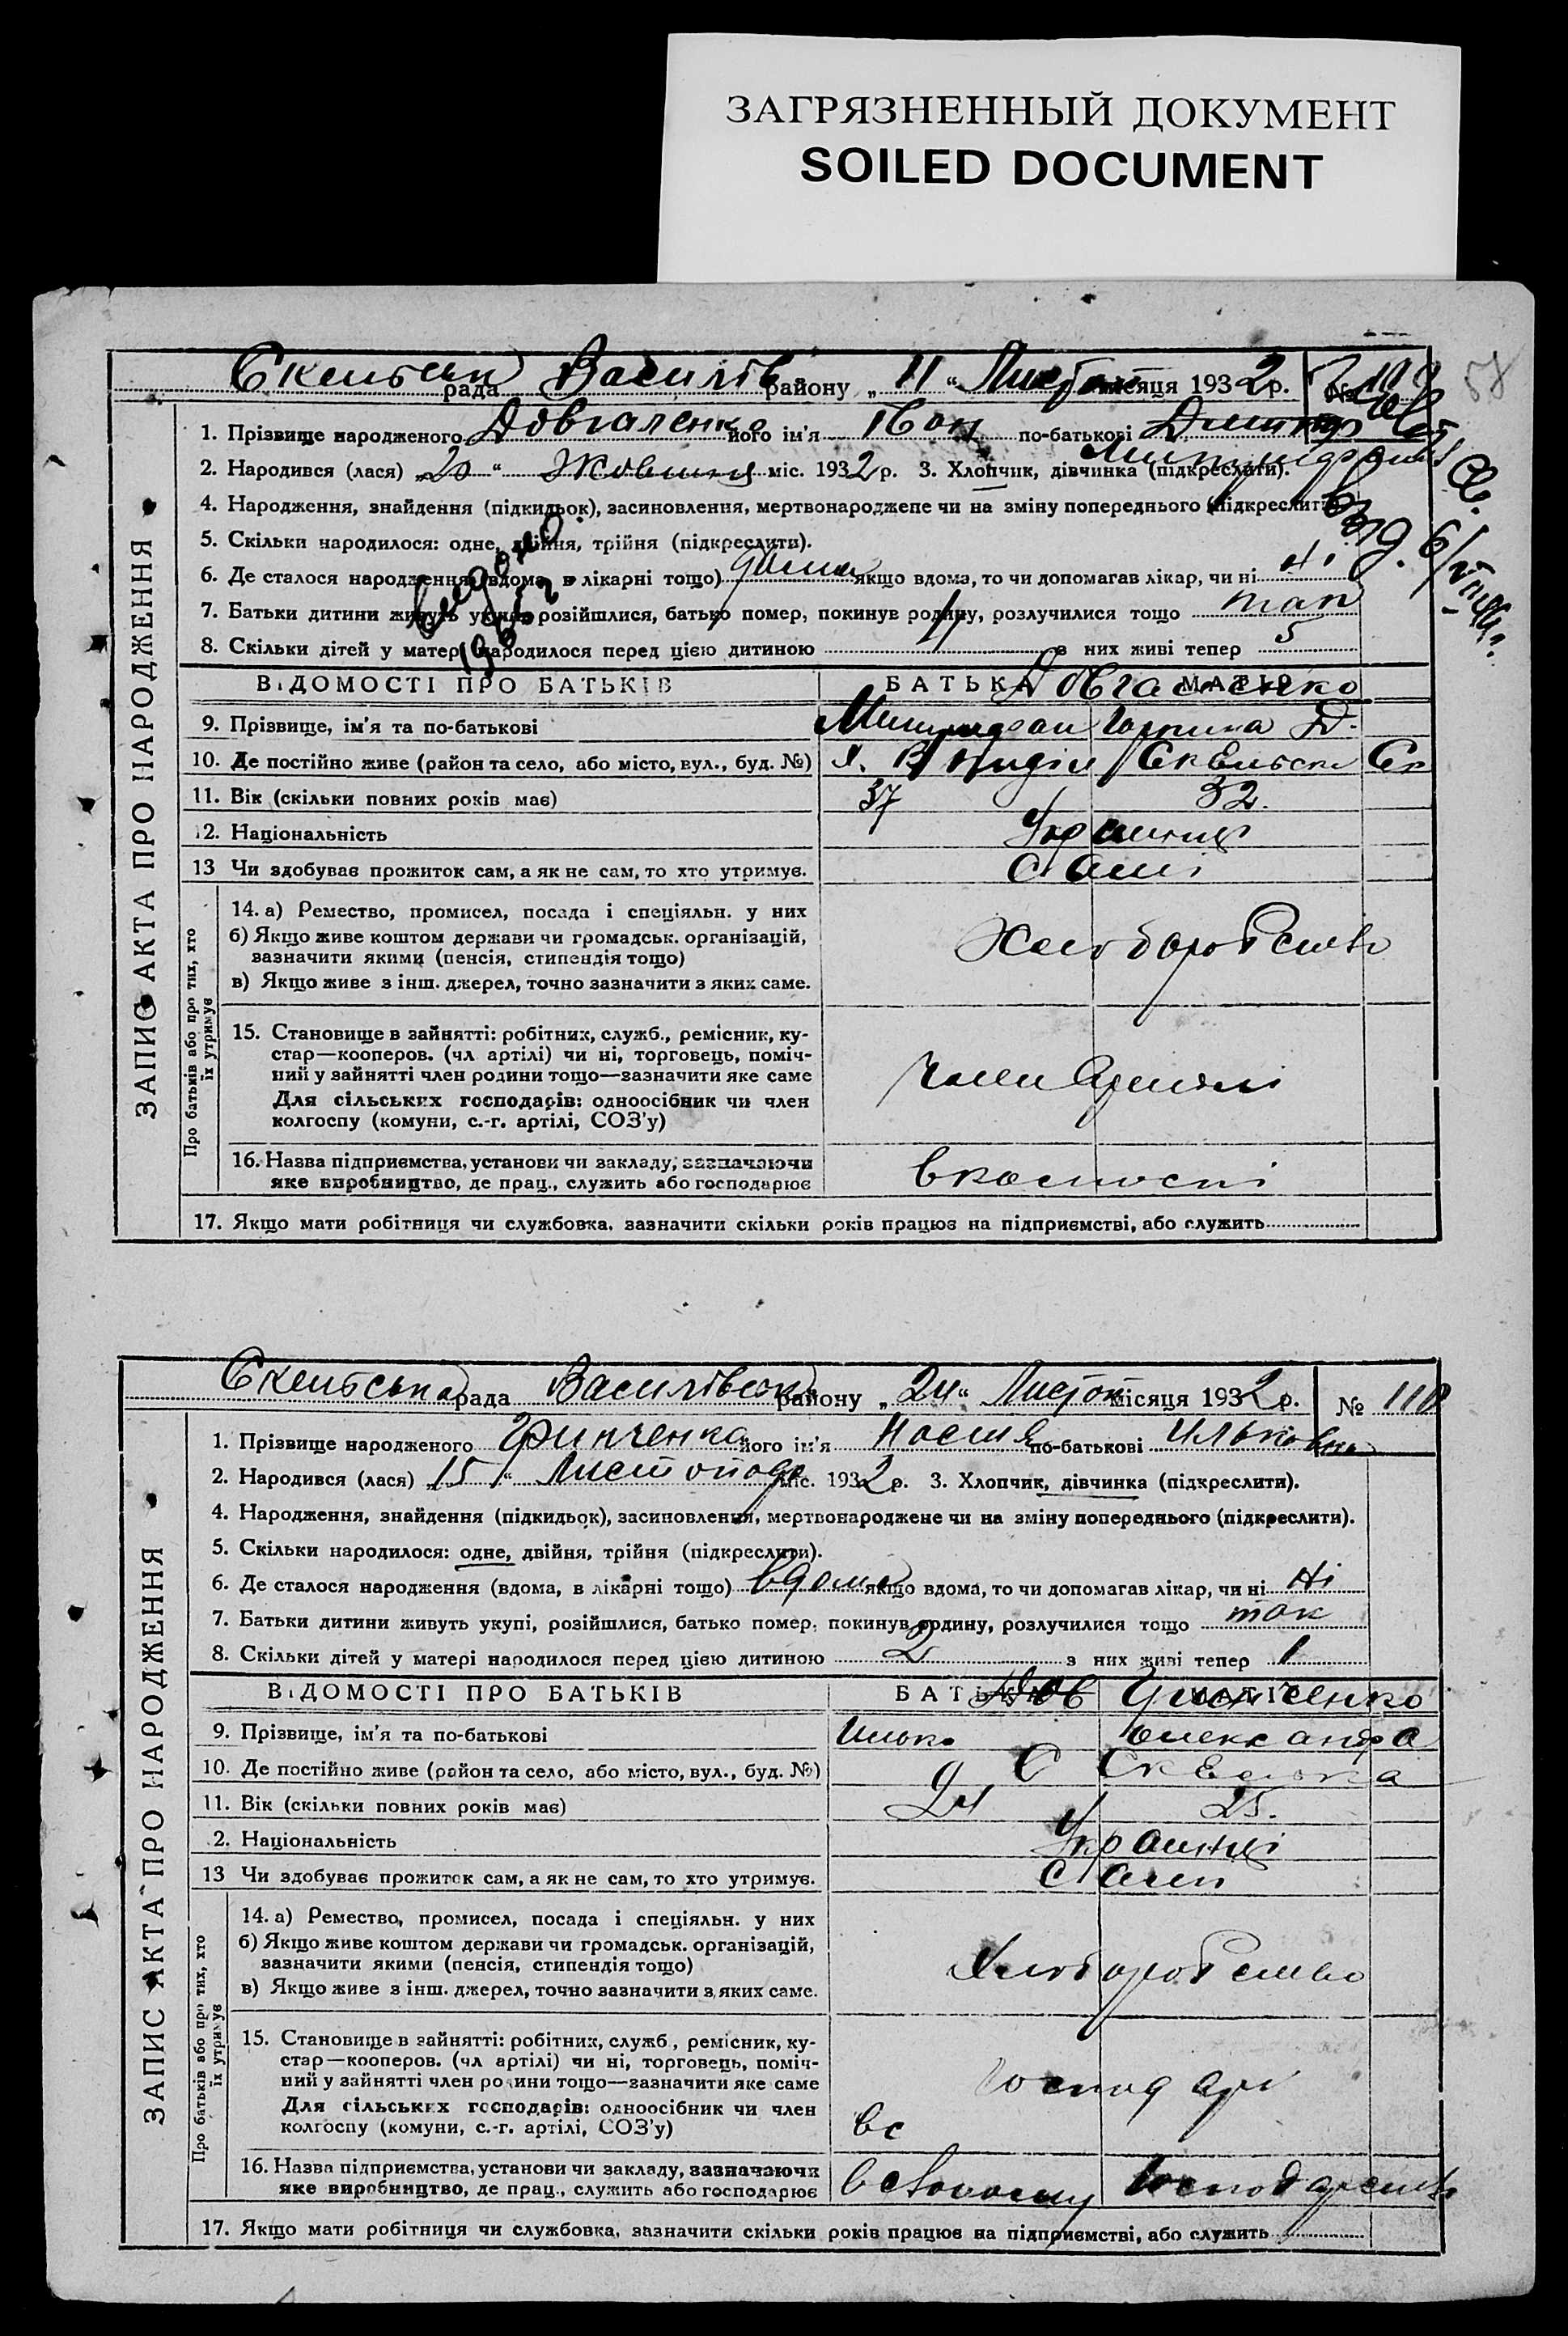 ЗАГРЯЗНЕННЫЙ ДОКУМЕНТ
SOILED DOCUMENT
ЗАПИС АКТА ПРО НАРОДЖЕННЯ
рада району „ 11 “ місяця 1932 р. №
1. Прізвище народженого Довгаленко його ім'я Іван по-батькові
2. Народився (лася) „ 20 “ Жовтня міс. 1932 р. 3. Хлопчик, дівчинка (підкреслити).
4. Народження, знайдення (підкидьок), засиновлення, мертвонароджене чи на зміну попереднього (підкреслити).
5. Скільки народилося: одне, двійня, трійня (підкреслити).
6. Де сталося народження (вдома, в лікарні тощо) дома якщо вдома, то чи допомагав лікар, чи ні ні
7. Батьки дитини живуть укупі, розійшлися, батько помер, покинув родину, розлучилися тощо так
8. Скільки дітей у матері народилося перед цією дитиною з них живі тепер 5
ВІДОМОСТІ ПРО БАТЬКІВ БАТЬКА МАТІР
Довгаленко
9. Прізвище, ім'я та по-батькові Горпина Д.
10. Де постійно живе (район та село, або місто, вул., буд. №)
11. Вік (скільки повних років має) 37 32.
12. Національність Українці
13 Чи здобуває прожиток сам, а як не сам, то хто утримує. Самі
Про батьків або про тих, хто їх утримує
14. а) Ремество, промисел, посада і спеціяльн. у них
б) Якщо живе коштом держави чи громадськ. організацій,
зазначити якими (пенсія, стипендія тощо)
Хлеборобство
в) Якщо живе з інш. джерел, точно зазначити з яких саме.
15. Становище в зайнятті: робітник, служб., ремісник, ку-
стар—кооперов. (чл артілі) чи ні, торговець, поміч-
ний у зайнятті член родини тощо—зазначити яке саме
член Артілі
Для сільських господарів: одноосібник чи член
колгоспу (комуни, с.-г. артілі, СОЗ'у)
16. Назва підприємства, установи чи закладу, зазначаючи
яке виробництво, де прац., служить або господарює
17. Якщо мати робітниця чи службовка, зазначити скільки років працює на підприємстві, або служить
ЗАПИС АКТА ПРО НАРОДЖЕННЯ
Скельська рада Василівськ району „ 24 “ Листоп місяця 1932 р. № 110
1. Прізвище народженого Гринченко його ім'я по-батькові Ильковна
2. Народився (лася) „ 15 “ Листопада міс. 1932 р. 3. Хлопчик, дівчинка (підкреслити).
4. Народження, знайдення (підкидьок), засиновлення, мертвонароджене чи на зміну попереднього (підкреслити).
5. Скільки народилося: одне, двійня, трійня (підкреслити).
6. Де сталося народження (вдома, в лікарні тощо) вдома якщо вдома, то чи допомагав лікар, чи ні ні
7. Батьки дитини живуть укупі, розійшлися, батько помер, покинув родину, розлучилися тощо так
8. Скільки дітей у матері народилося перед цією дитиною 2 з них живі тепер 1
ВІДОМОСТІ ПРО БАТЬКІВ БАТЬКА МАТІР
Гринченко
9. Прізвище, ім'я та по-батькові Илько Олександра
10. Де постійно живе (район та село, або місто, вул., буд. №) С Скелька
11. Вік (скільки повних років має) 24 25.
12. Національність Українці
13 Чи здобуває прожиток сам, а як не сам, то хто утримує. Самі
Про батьків або про тих, хто їх утримує
14. а) Ремество, промисел, посада і спеціяльн. у них
б) Якщо живе коштом держави чи громадськ. організацій,
зазначити якими (пенсія, стипендія тощо)
Хлеборобство
в) Якщо живе з інш. джерел, точно зазначити з яких саме.
15. Становище в зайнятті: робітник, служб., ремісник, ку-
стар—кооперов. (чл артілі) чи ні, торговець, поміч-
ний у зайнятті член родини тощо—зазначити яке саме
господарі
Для сільських господарів: одноосібник чи член
колгоспу (комуни, с.-г. артілі, СОЗ'у)
вс
16. Назва підприємства, установи чи закладу, зазначаючи
яке виробництво, де прац., служить або господарює
господарстві
17. Якщо мати робітниця чи службовка, зазначити скільки років працює на підприємстві, або служить